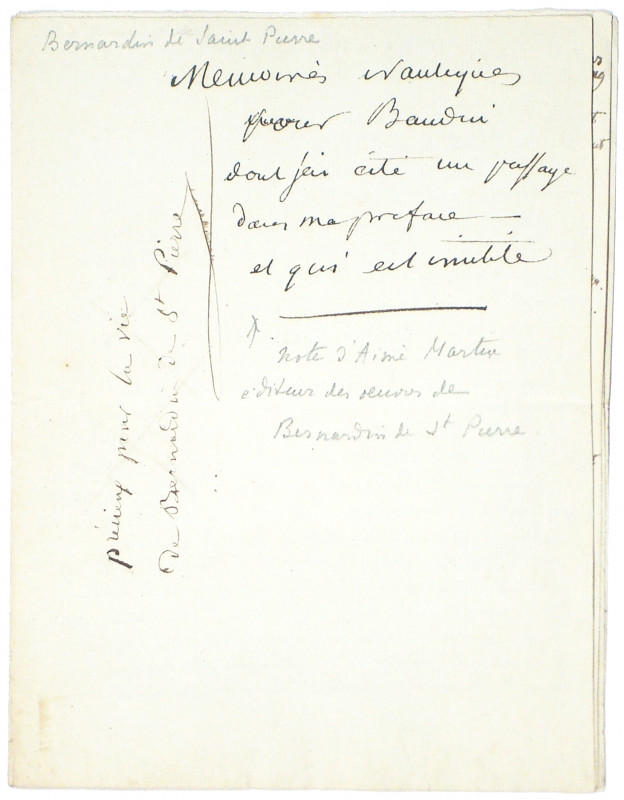 Bernardin de Saint Pierre
Memoires nautiques
pour Baudin
dont j'ai cité un passage
dans ma preface —
et qui est inédite
note d'Aimé Martin
éditeur des oeuvres de
Bernardin de St Pierre
précieux pour la vie
de Bernardin de St Pierre